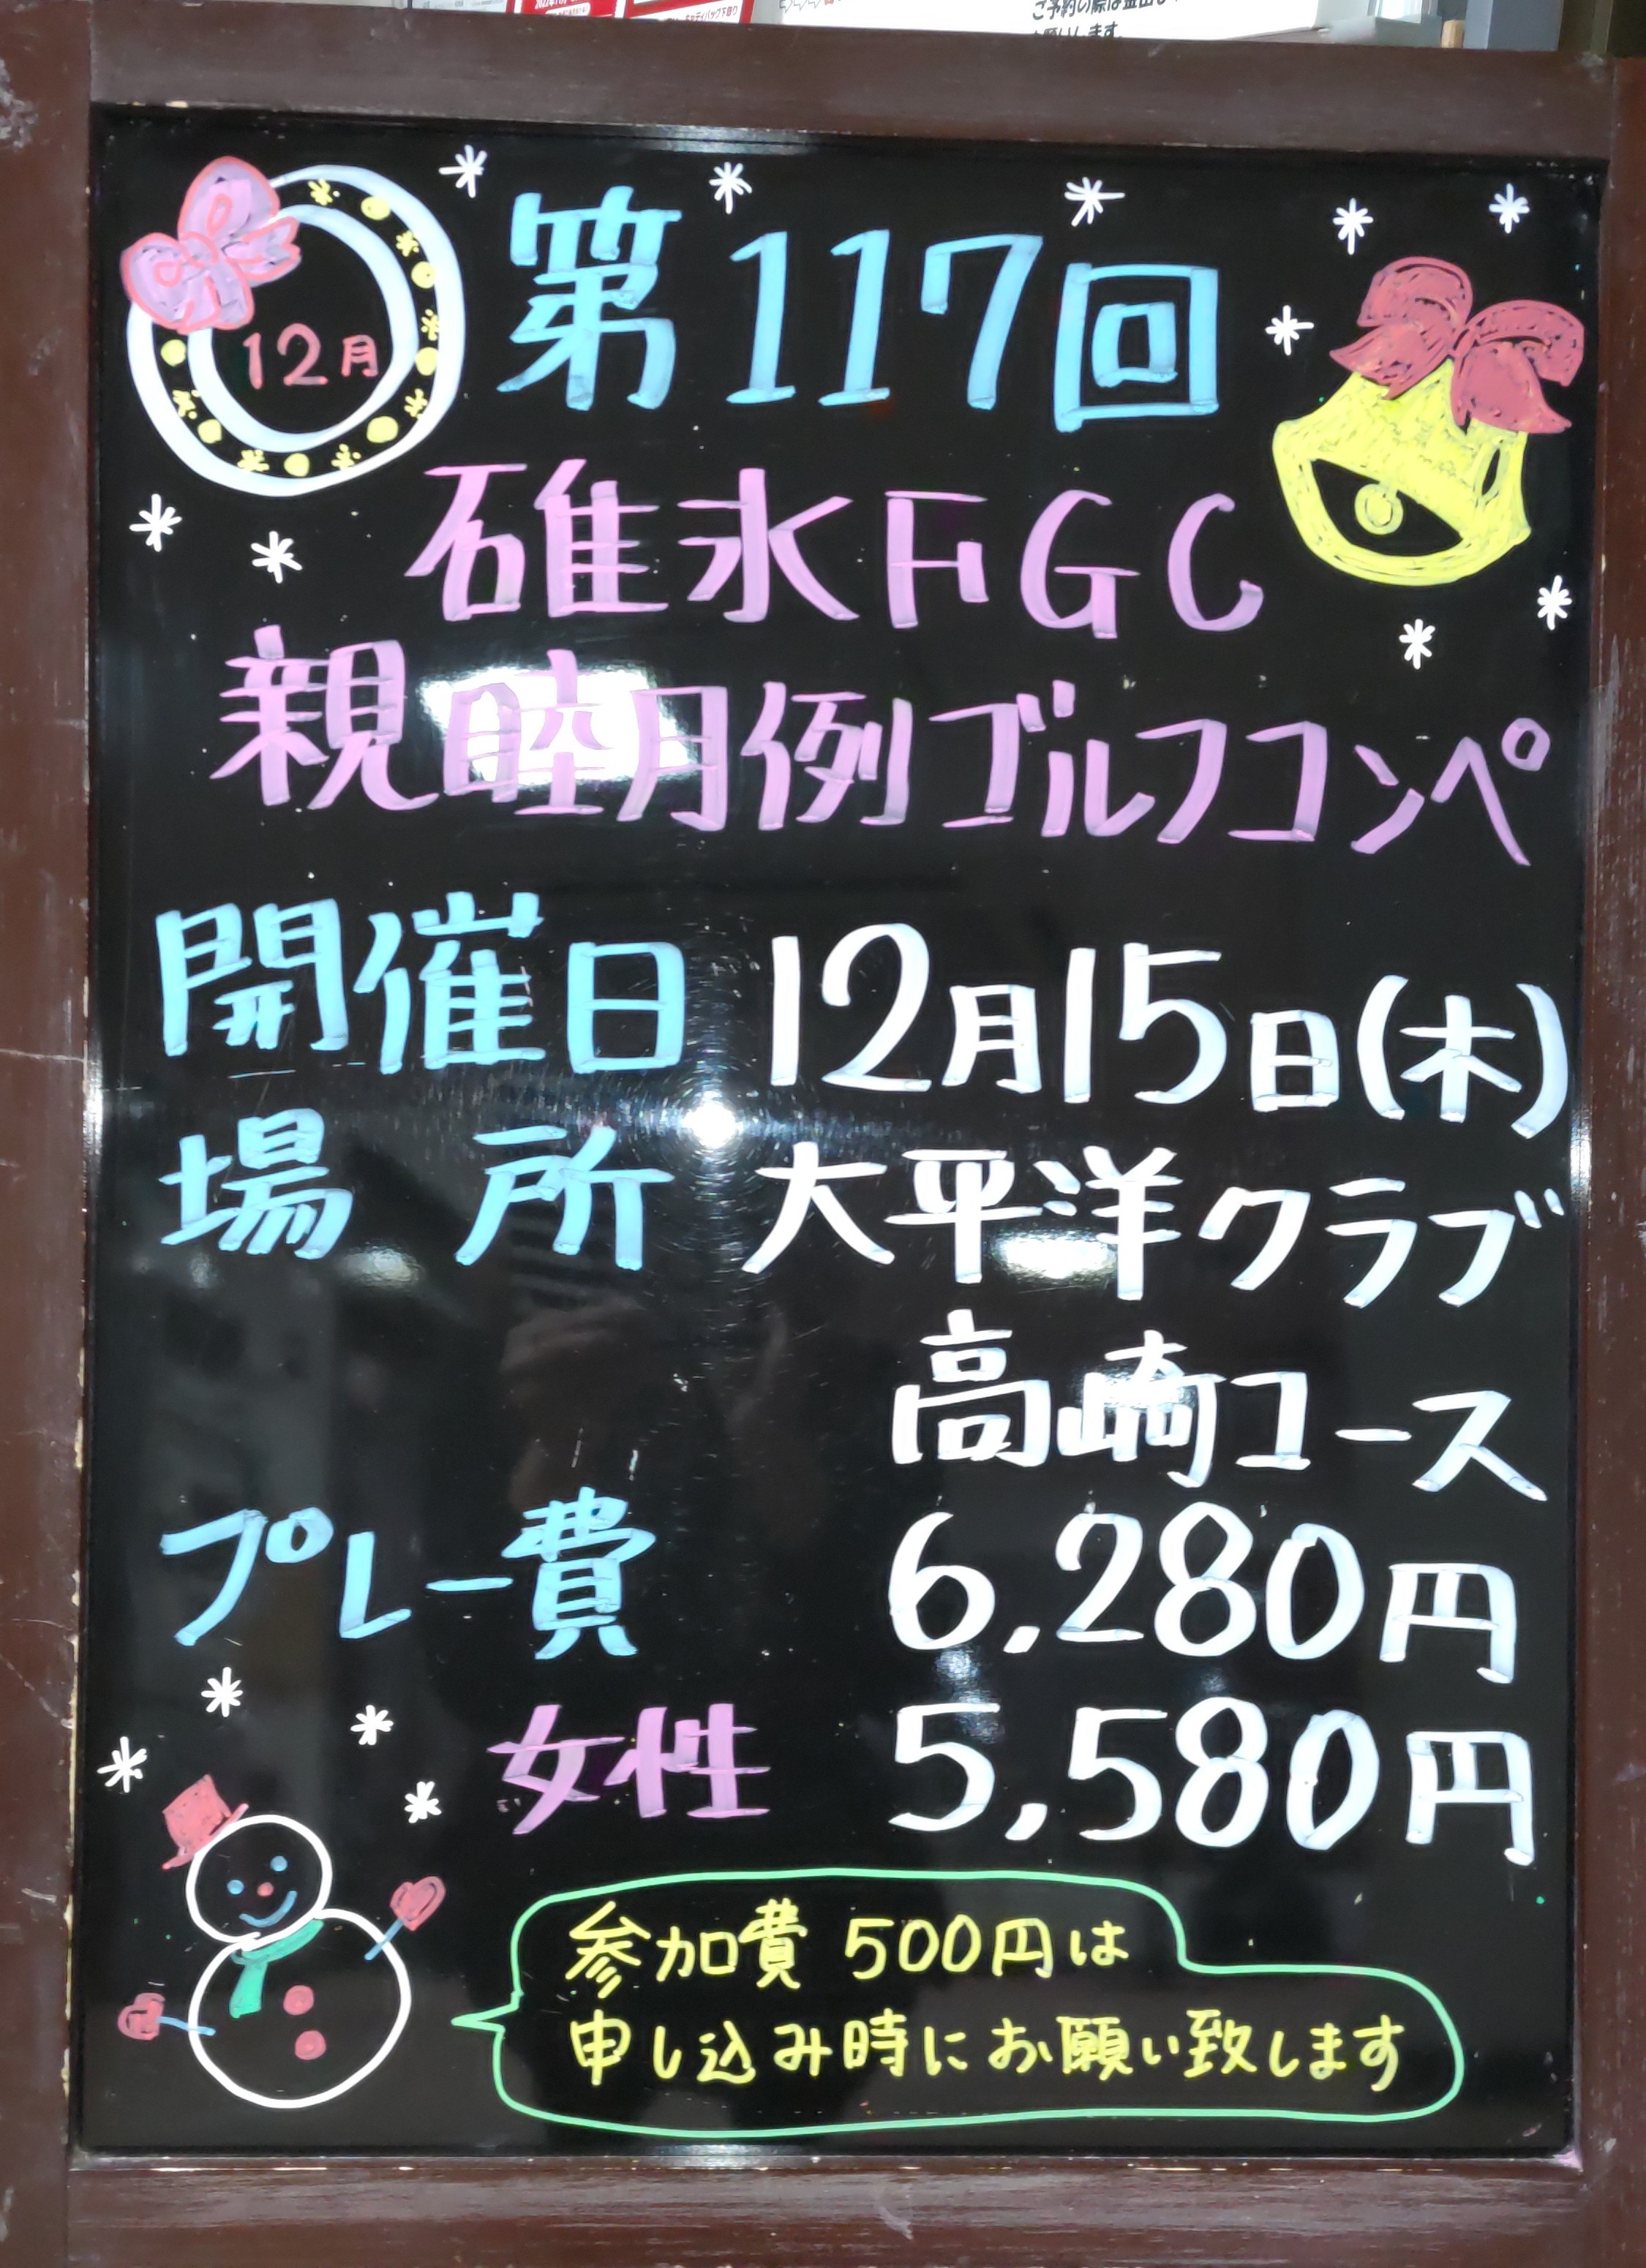 ご予約の際は
12月
第117回
碓氷FGC
親睦月例ゴルフコンペ
開催日 12月15日(木)
場所 大平洋クラブ
高崎コース
プレー費 6,280円
女性 5,580円
参加費 500円は
申し込み時にお願い致します